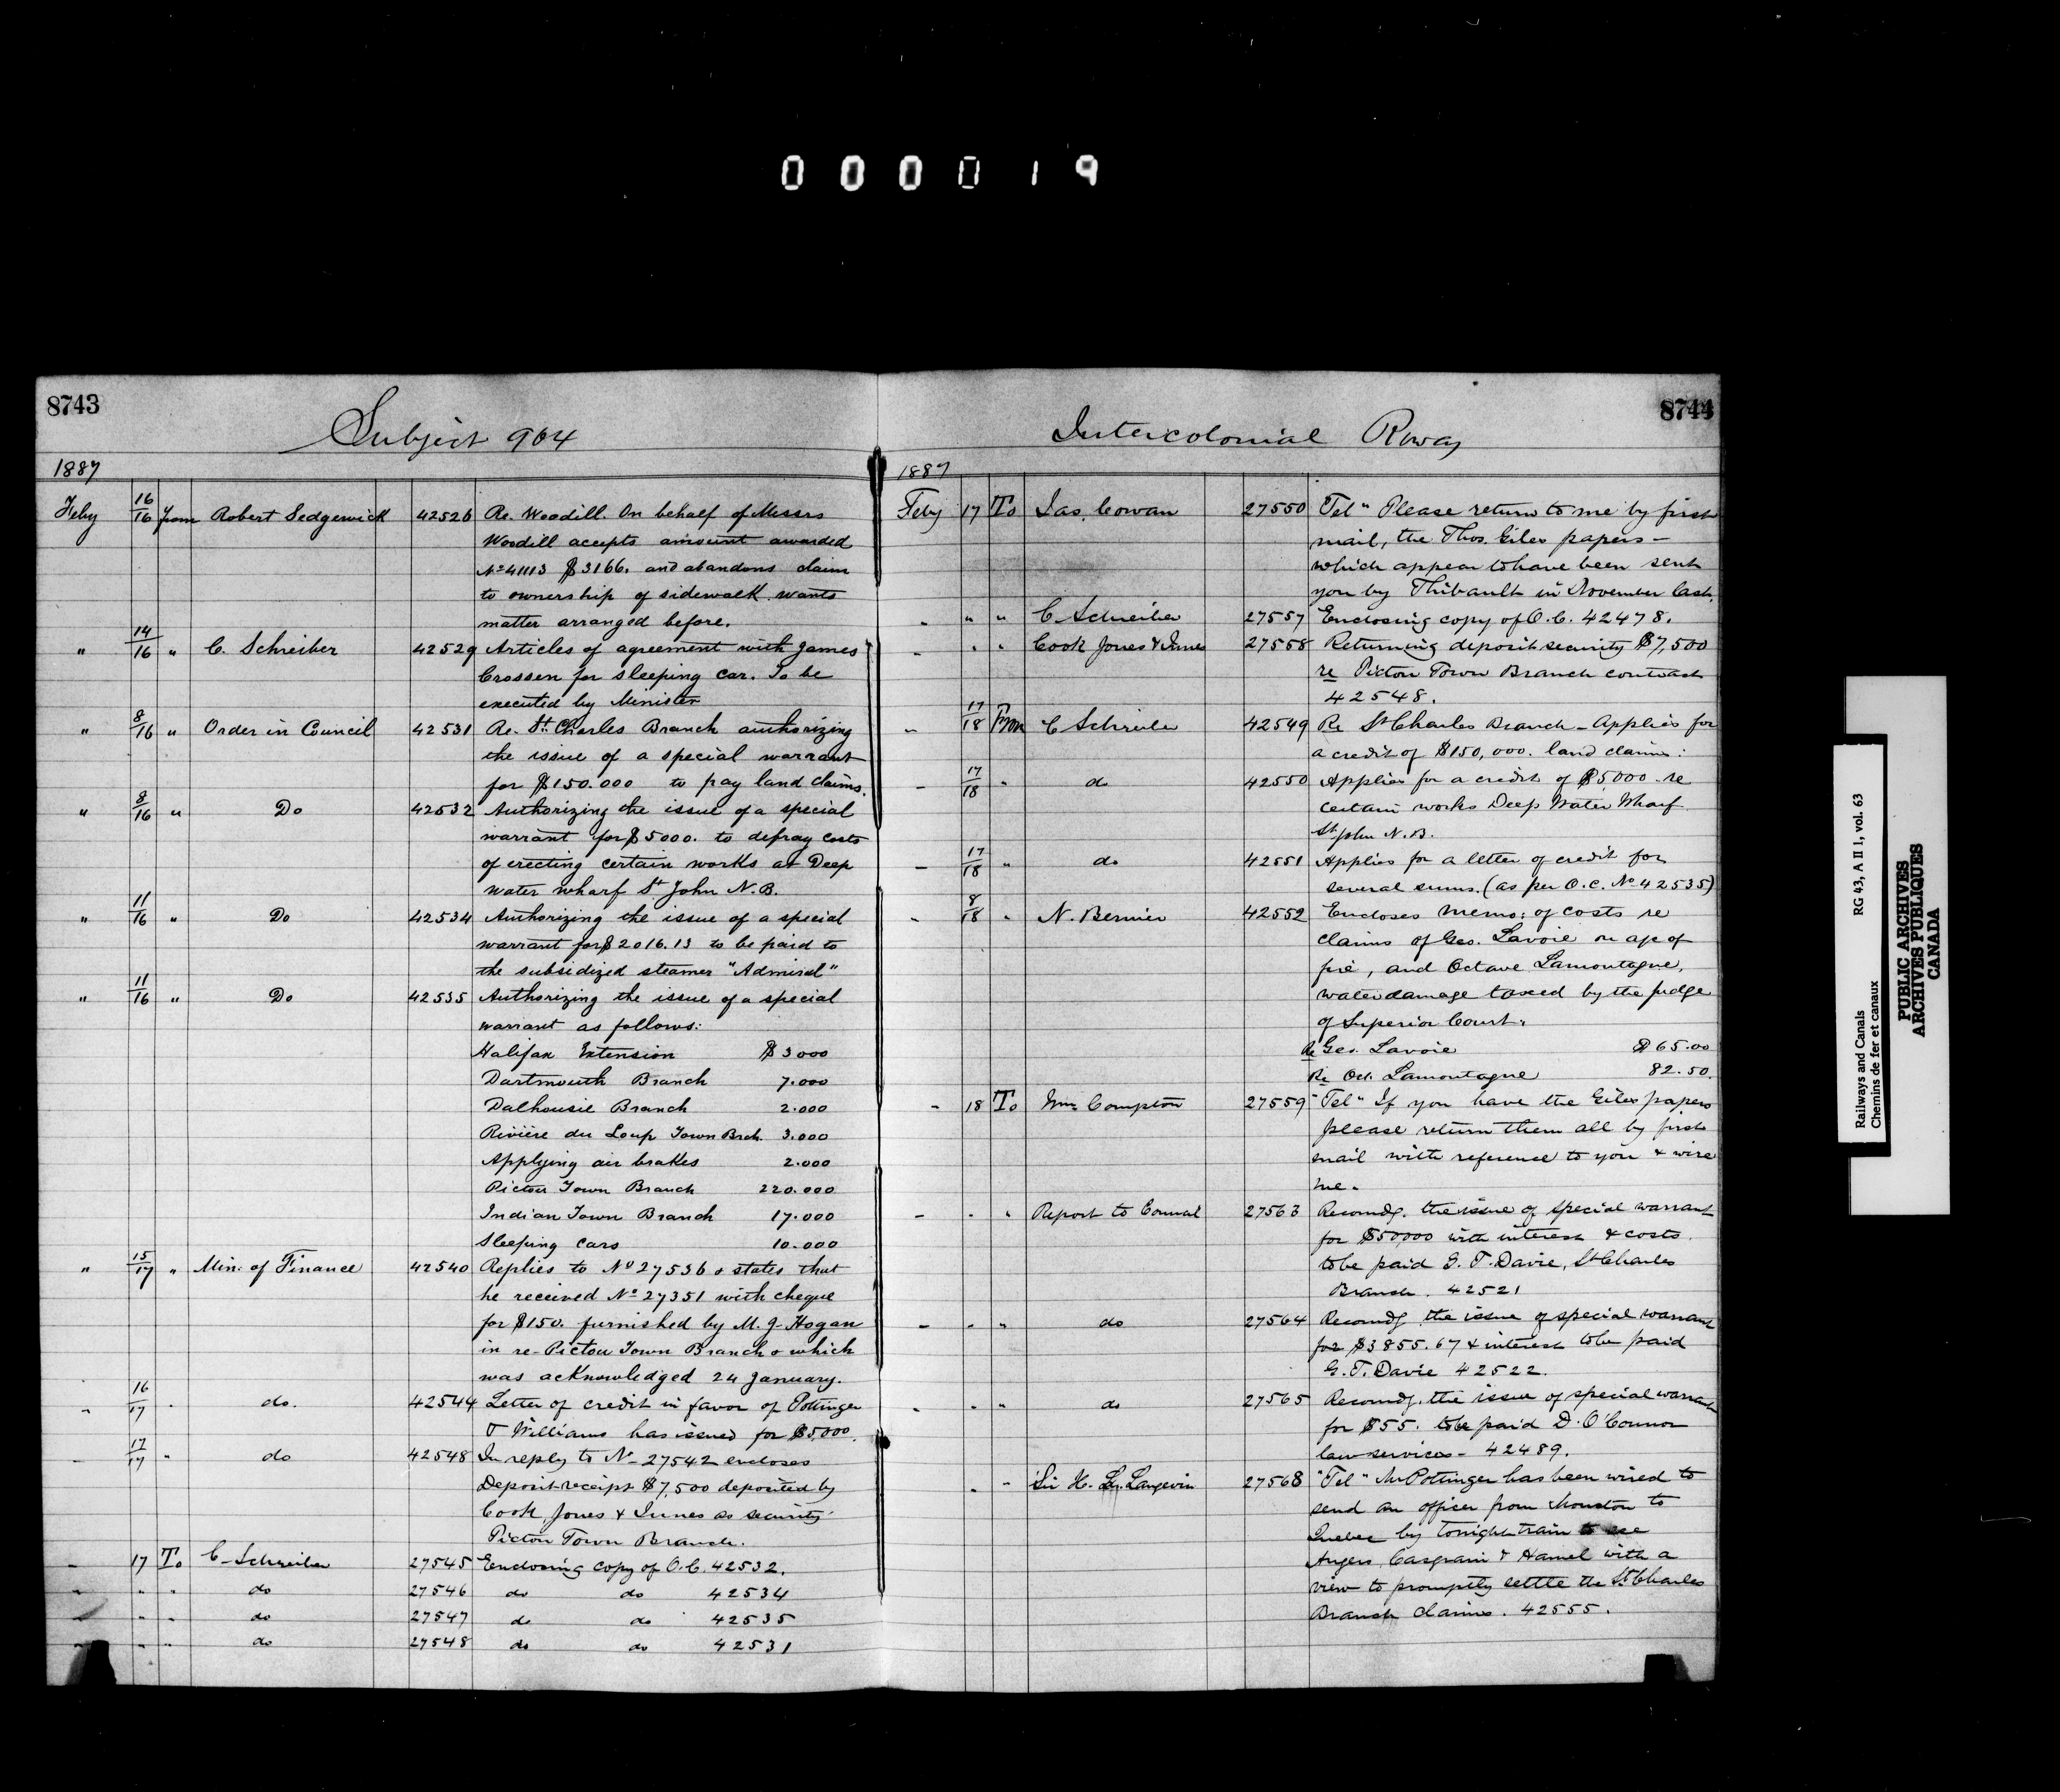 000019
8743
Subject 904
1887
Feby 16/16 from Robert Sedgewick 42526 Re. Woodill. On behalf of Messrs
Woodill accepts amount awarded
No 41113 $3166. and abandons claim
to ownership of sidewalk. wants
matter arranged before.
" 14/16 " C. Schreiber 42529 Articles of agreement with James
Crossen for sleeping car. To be
executed by Minister
" 8/16 " Order in Council 42531 Re. St. Charles Branch authorizing
the issue of a special warrant
for $150.000 to pay land claims.
" 8/16 " Do 42532 Authorizing the issue of a special
warrant for $5000. to defray costs
of erecting certain works at Deep
water wharf St John N.B.
" 11/16 " Do 42534 Authorizing the issue of a special
warrant for $2016.13 to be paid to
the subsidized steamer "Admiral"
" 11/16 " Do 42535 Authorizing the issue of a special
warrant as follows:
Halifax Extension $3000
Dartmouth Branch 7.000
Dalhousie Branch 2.000
Rivière du Loup Town Brch. 3.000
Applying air brakes 2.000
Pictou Town Branch 220.000
Indian Town Branch 17.000
Sleeping cars 10.000
" 15/17 " Min. of Finance 42540 Replies to No 27536 & states that
he received No 27351 with cheque
for $150. furnished by M. J. Hogan
in re- Pictou Town Branch & which
was acknowledged 24 January.
" 16/17 " do. 42544 Letter of credit in favor of Pottinger
& Williams has issued for $5,000.
" 17/17 " do 42548 In reply to No 27542 encloses
Deposit receipt $7,500 deposited by
Cook, Jones & Innes as security
Pictou Town Branch.
" 17 To C. Schreiber 27545 Enclosing copy of O.C. 42532.
" " " do 27546 do do 42534
" " " do 27547 do do 42535
" " " do 27548 do do 42531
8744
Intercolonial Rway
1887
Feby 17 To Jas. Cowan 27550 "Tel" Please return to me by first
mail, the Thos. Giles papers -
which appear to have been sent
you by Thibault in November last.
" " " C Schreiber 27557 Enclosing copy of O.C. 42478.
" " " Cook Jones & Innes 27558 Returning deposit security $7,500
re Pictou Town Branch contract
42548.
" 17/18 From C Schreiber 42549 Re St Charles Branch - Applies for
a credit of $150,000. land claims:
" 17/18 " do 42550 Applies for a credit of $5000 - re
certain works Deep Water Wharf
St. John N.B.
" 17/18 " do 42551 Applies for a letter of credit for
several sums. (as per O.C. No 42535)
" 8/18 " N. Bernier 42552 Encloses memo: of costs re
claims of Geo. Lavoie
and Octave Lamontagne,
water damage taxed by the judge
of Superior Court.
Re Geo. Lavoie $65.00
Re Oct. Lamontagne 82.50.
" 18 To Wm Compton 27559 "Tel" If you have the Giles papers
please return them all by first
mail with reference to you & wire
me.
" " " Report to Council 27563 Recomdg. the issue of special warrant
for $50,000 with interest & costs
to be paid G. T. Davie, St Charles
Branch. 42521
" " " do 27564 Recomdg the issue of special warrant
for $3855.67 & interest to be paid
G. T. Davie 42522.
" " " do 27565 Recomdg. the issue of special warrant
for $55. to be paid D. O'Connor
law services - 42489.
" " Sir H. L. Langevin 27568 "Tel" Mr Pottinger has been wired to
send an officer from Moncton to
Quebec by tonight train to see
Angers, Casgrain & Hamel with a
view to promptly settle the St Charles
Branch claims. 42555.
Railways and Canals RG 43, A II 1, vol. 63
Chemins de fer et canaux
PUBLIC ARCHIVES
ARCHIVES PUBLIQUES
CANADA